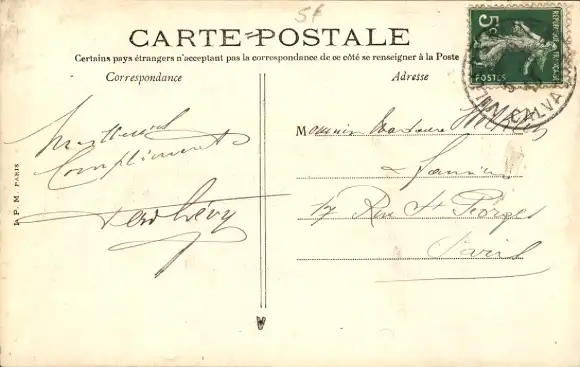 5f
CARTE POSTALE
Certains pays étrangers n'acceptant pas la correspondance de ce côté se renseigner à la Poste
Correspondance
Adresse
5c
REPUBLIQUE FRANÇAISE
POSTES
CALVA
Meilleurs
Compliments
Lévy
Monsieur Madame
& Famille
17 Rue St Georges
Paris
I. P. M. PARIS